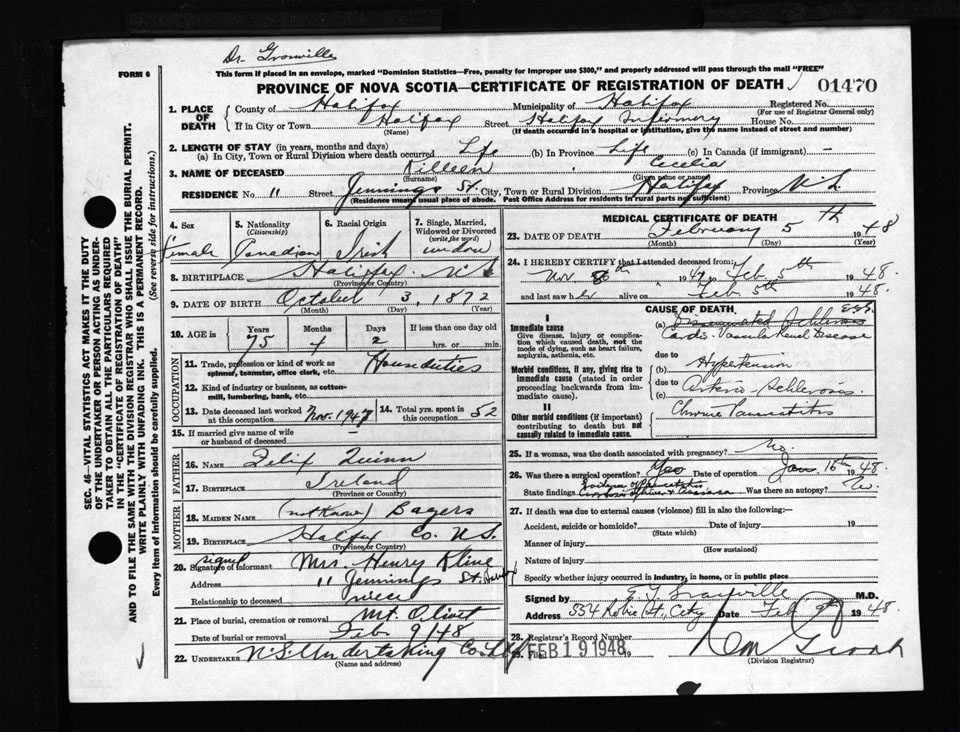 Dr. Granville
This form if placed in an envelope, marked "Dominion Statistics—Free, penalty for improper use $300," and properly addressed will pass through the mail "FREE"
FORM 6
PROVINCE OF NOVA SCOTIA—CERTIFICATE OF REGISTRATION OF DEATH
01470
1. PLACE OF DEATH
County of Halifax Municipality of Halifax Registered No.
(For use of Registrar General only)
If in City or Town Halifax Street Halifax Infirmary House No.
(Name) (If death occurred in a hospital or institution, give the name instead of street and number)
2. LENGTH OF STAY (in years, months and days)
(a) In City, Town or Rural Division where death occurred Life (b) In Province Life (c) In Canada (if immigrant) —
3. NAME OF DECEASED Killeen Cecelia
(Surname) (Given name or names)
RESIDENCE No. 11 Street Jennings St. City, Town or Rural Division Halifax Province N.S.
(Residence means usual place of abode. Post Office Address for residents in rural parts not sufficient)
SEC. 46—VITAL STATISTICS ACT MAKES IT THE DUTY
OF THE UNDERTAKER OR PERSON ACTING AS UNDER-
TAKER TO OBTAIN ALL THE PARTICULARS REQUIRED
IN THE "CERTIFICATE OF REGISTRATION OF DEATH"
AND TO FILE THE SAME WITH THE DIVISION REGISTRAR WHO SHALL ISSUE THE BURIAL PERMIT.
WRITE PLAINLY WITH UNFADING INK. THIS IS A PERMANENT RECORD.
Every item of information should be carefully supplied. (See reverse side for instructions.)
4. Sex
Female
5. Nationality
(Citizenship)
Canadian
6. Racial Origin
Irish
7. Single, Married,
Widowed or Divorced
(write the word)
widow
8. BIRTHPLACE Halifax N.S.
(Province or Country)
9. DATE OF BIRTH October 3, 1872
(Month) (Day) (Year)
10. AGE in
Years Months Days If less than one day old
75 4 2 hrs. or min.
OCCUPATION
11. Trade, profession or kind of work as
spinner, teamster, office clerk, etc. Housduties
12. Kind of industry or business, as cotton-
mill, lumbering, bank, etc.
13. Date deceased last worked
at this occupation Nov. 1947
14. Total yrs. spent in
this occupation 52
15. If married give name of wife
or husband of deceased —
FATHER
16. NAME Felix Quinn
17. BIRTHPLACE Ireland
(Province or Country)
MOTHER
18. MAIDEN NAME (not known) Bagers
19. BIRTHPLACE Halifax Co. N.S.
(Province or Country)
signed
20. Signature of informant Mrs. Henry Kline
Address 11 Jennings St.
Relationship to deceased niece
21. Place of burial, cremation or removal Mt. Olivet
Date of burial or removal Feb. 9/48
22. UNDERTAKER N.S. Undertaking Co. Ltd
(Name and address)
MEDICAL CERTIFICATE OF DEATH
23. DATE OF DEATH February 5th 1948
(Month) (Day) (Year)
24. I HEREBY CERTIFY that I attended deceased from:
Nov 1947 to Feb 5th 1948.
and last saw her alive on Feb 5th 1948.
CAUSE OF DEATH
I
Immediate cause
Give disease, injury or complica-
tion which caused death, not the
mode of dying, such as heart failure,
asphyxia, asthenia, etc.
(a) Disseminated Schlerosis
Cardio-Vascular Renal Disease
due to
Morbid conditions, if any, giving rise to
immediate cause (stated in order
proceeding backwards from im-
mediate cause).
(b) Hypertension
due to
(c) Arterio Schlerosis
II
Other morbid conditions (if important)
contributing to death but not
causally related to immediate cause.
Chronic Pancreatitis
25. If a woman, was the death associated with pregnancy? No
26. Was there a surgical operation? Yes Date of operation Jan. 16th 1948.
State findings Was there an autopsy? No.
27. If death was due to external causes (violence) fill in also the following:—
Accident, suicide or homicide? Date of injury 19
(State which)
Manner of injury
(How sustained)
Nature of injury
Specify whether injury occurred in industry, in home, or in public place
Signed by E. F. Granville M.D.
Address 554 Robie St., City Date Feb 9 1948.
28. Registrar's Record Number
29. Filed FEB 19 1948 19
(Division Registrar)